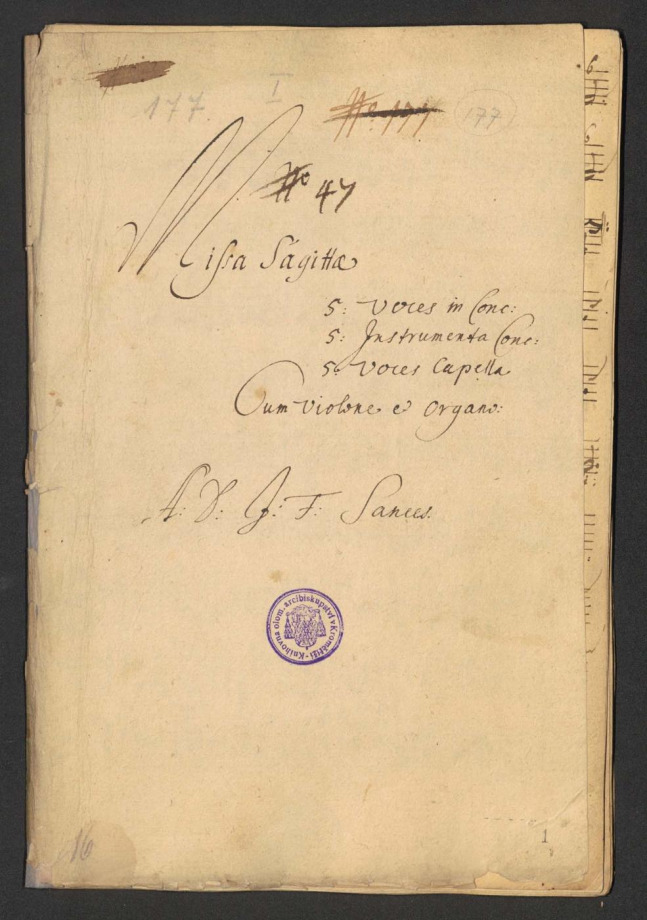 177. I N° 177 177
N° 47
Missa Sagittæ
5: Voces in Conc:
5: Instrumenta Conc:
5: Voces Capella
Cum Violone e Organo:
A: D: J: F: Sances.
Knihovna olom. arcibiskupství v Kroměříži
16
1